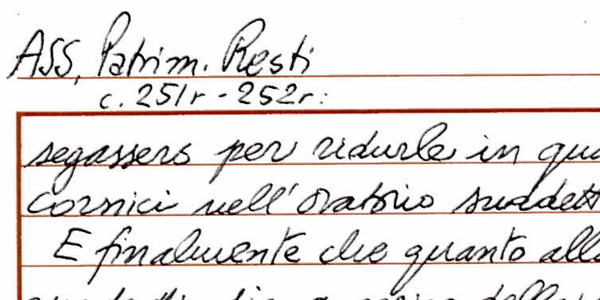 ASS, Patrim. Resti
c. 251r - 252r:
segassero per ridurle in qua
cornici nell'oratorio suddett
E finalmente che quanto alla